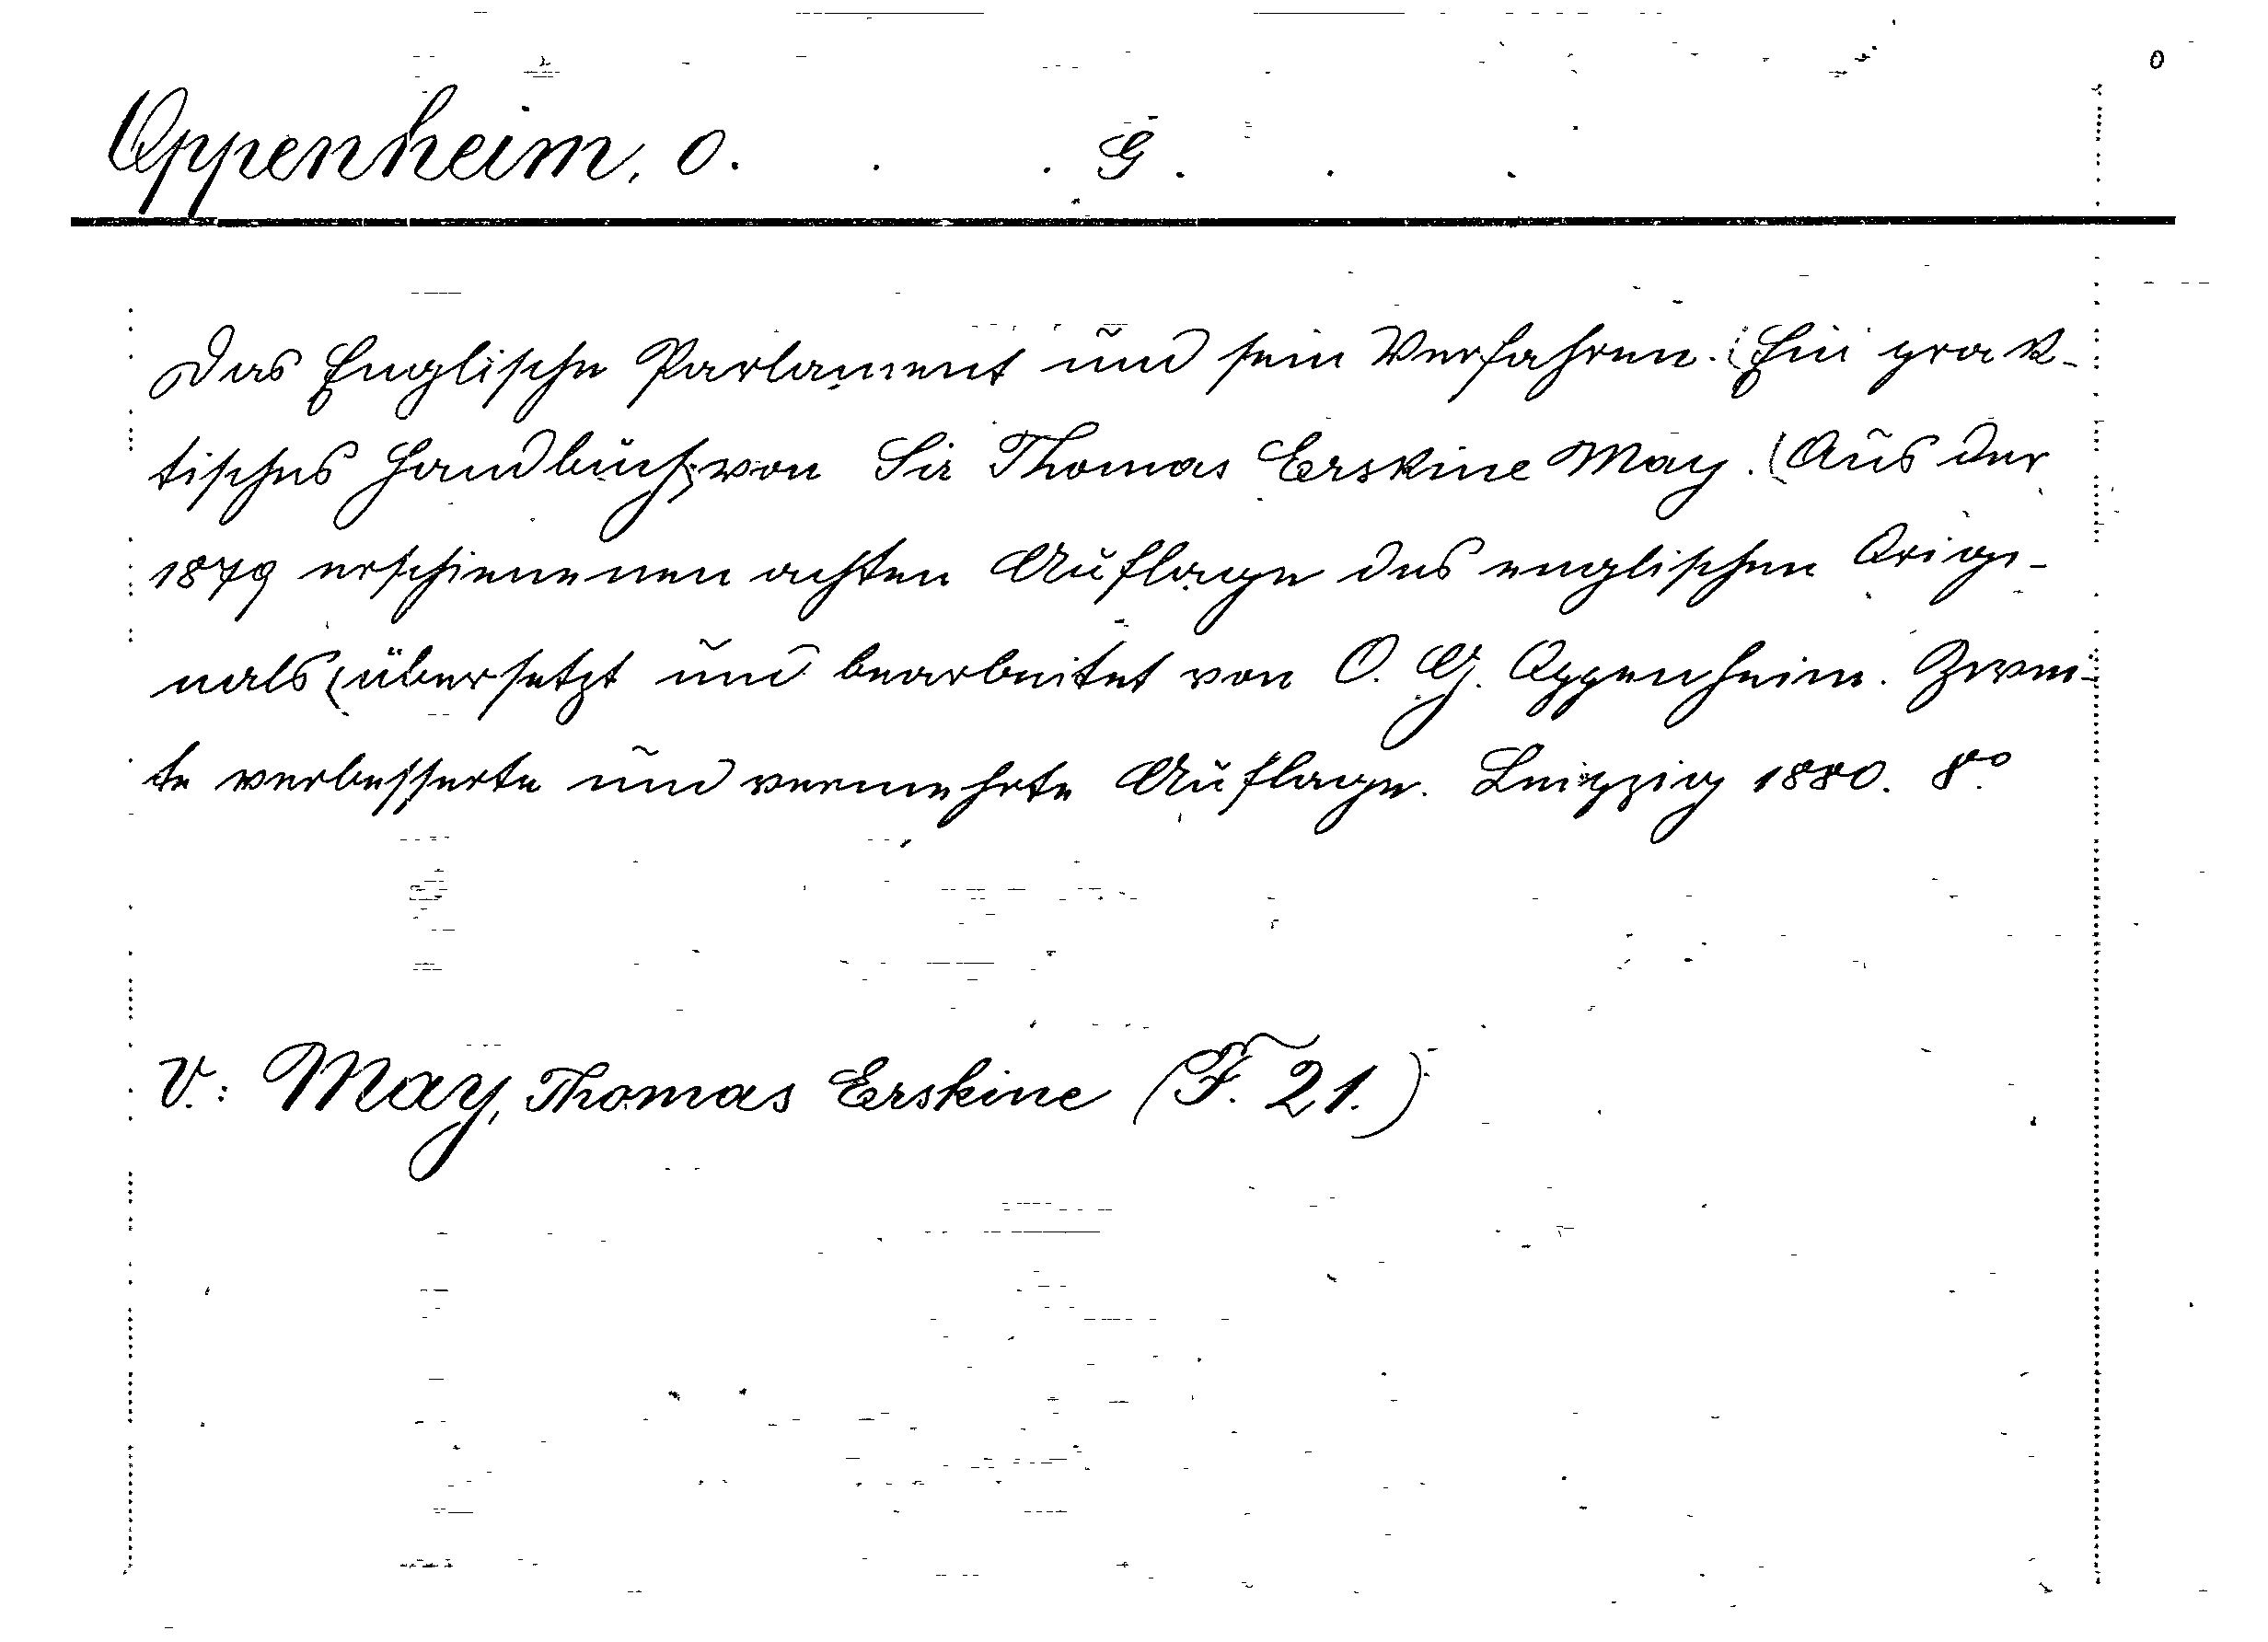 Oppenheim, O. G.
Das Englische Parlament und sein Verfahren. (Ein prak-
tisches Handbuch von Sir Thomas Erskine May. (Aus der
1879 erschienenen achten Auflage des englischen Origi-
nals (übersetzt und bearbeitet von O. G. Oppenheim. Zwei-
te verbesserte und vermehrte Auflage. Leipzig 1880. 8.°
V.: May, Thomas Erskine (F. 21.)